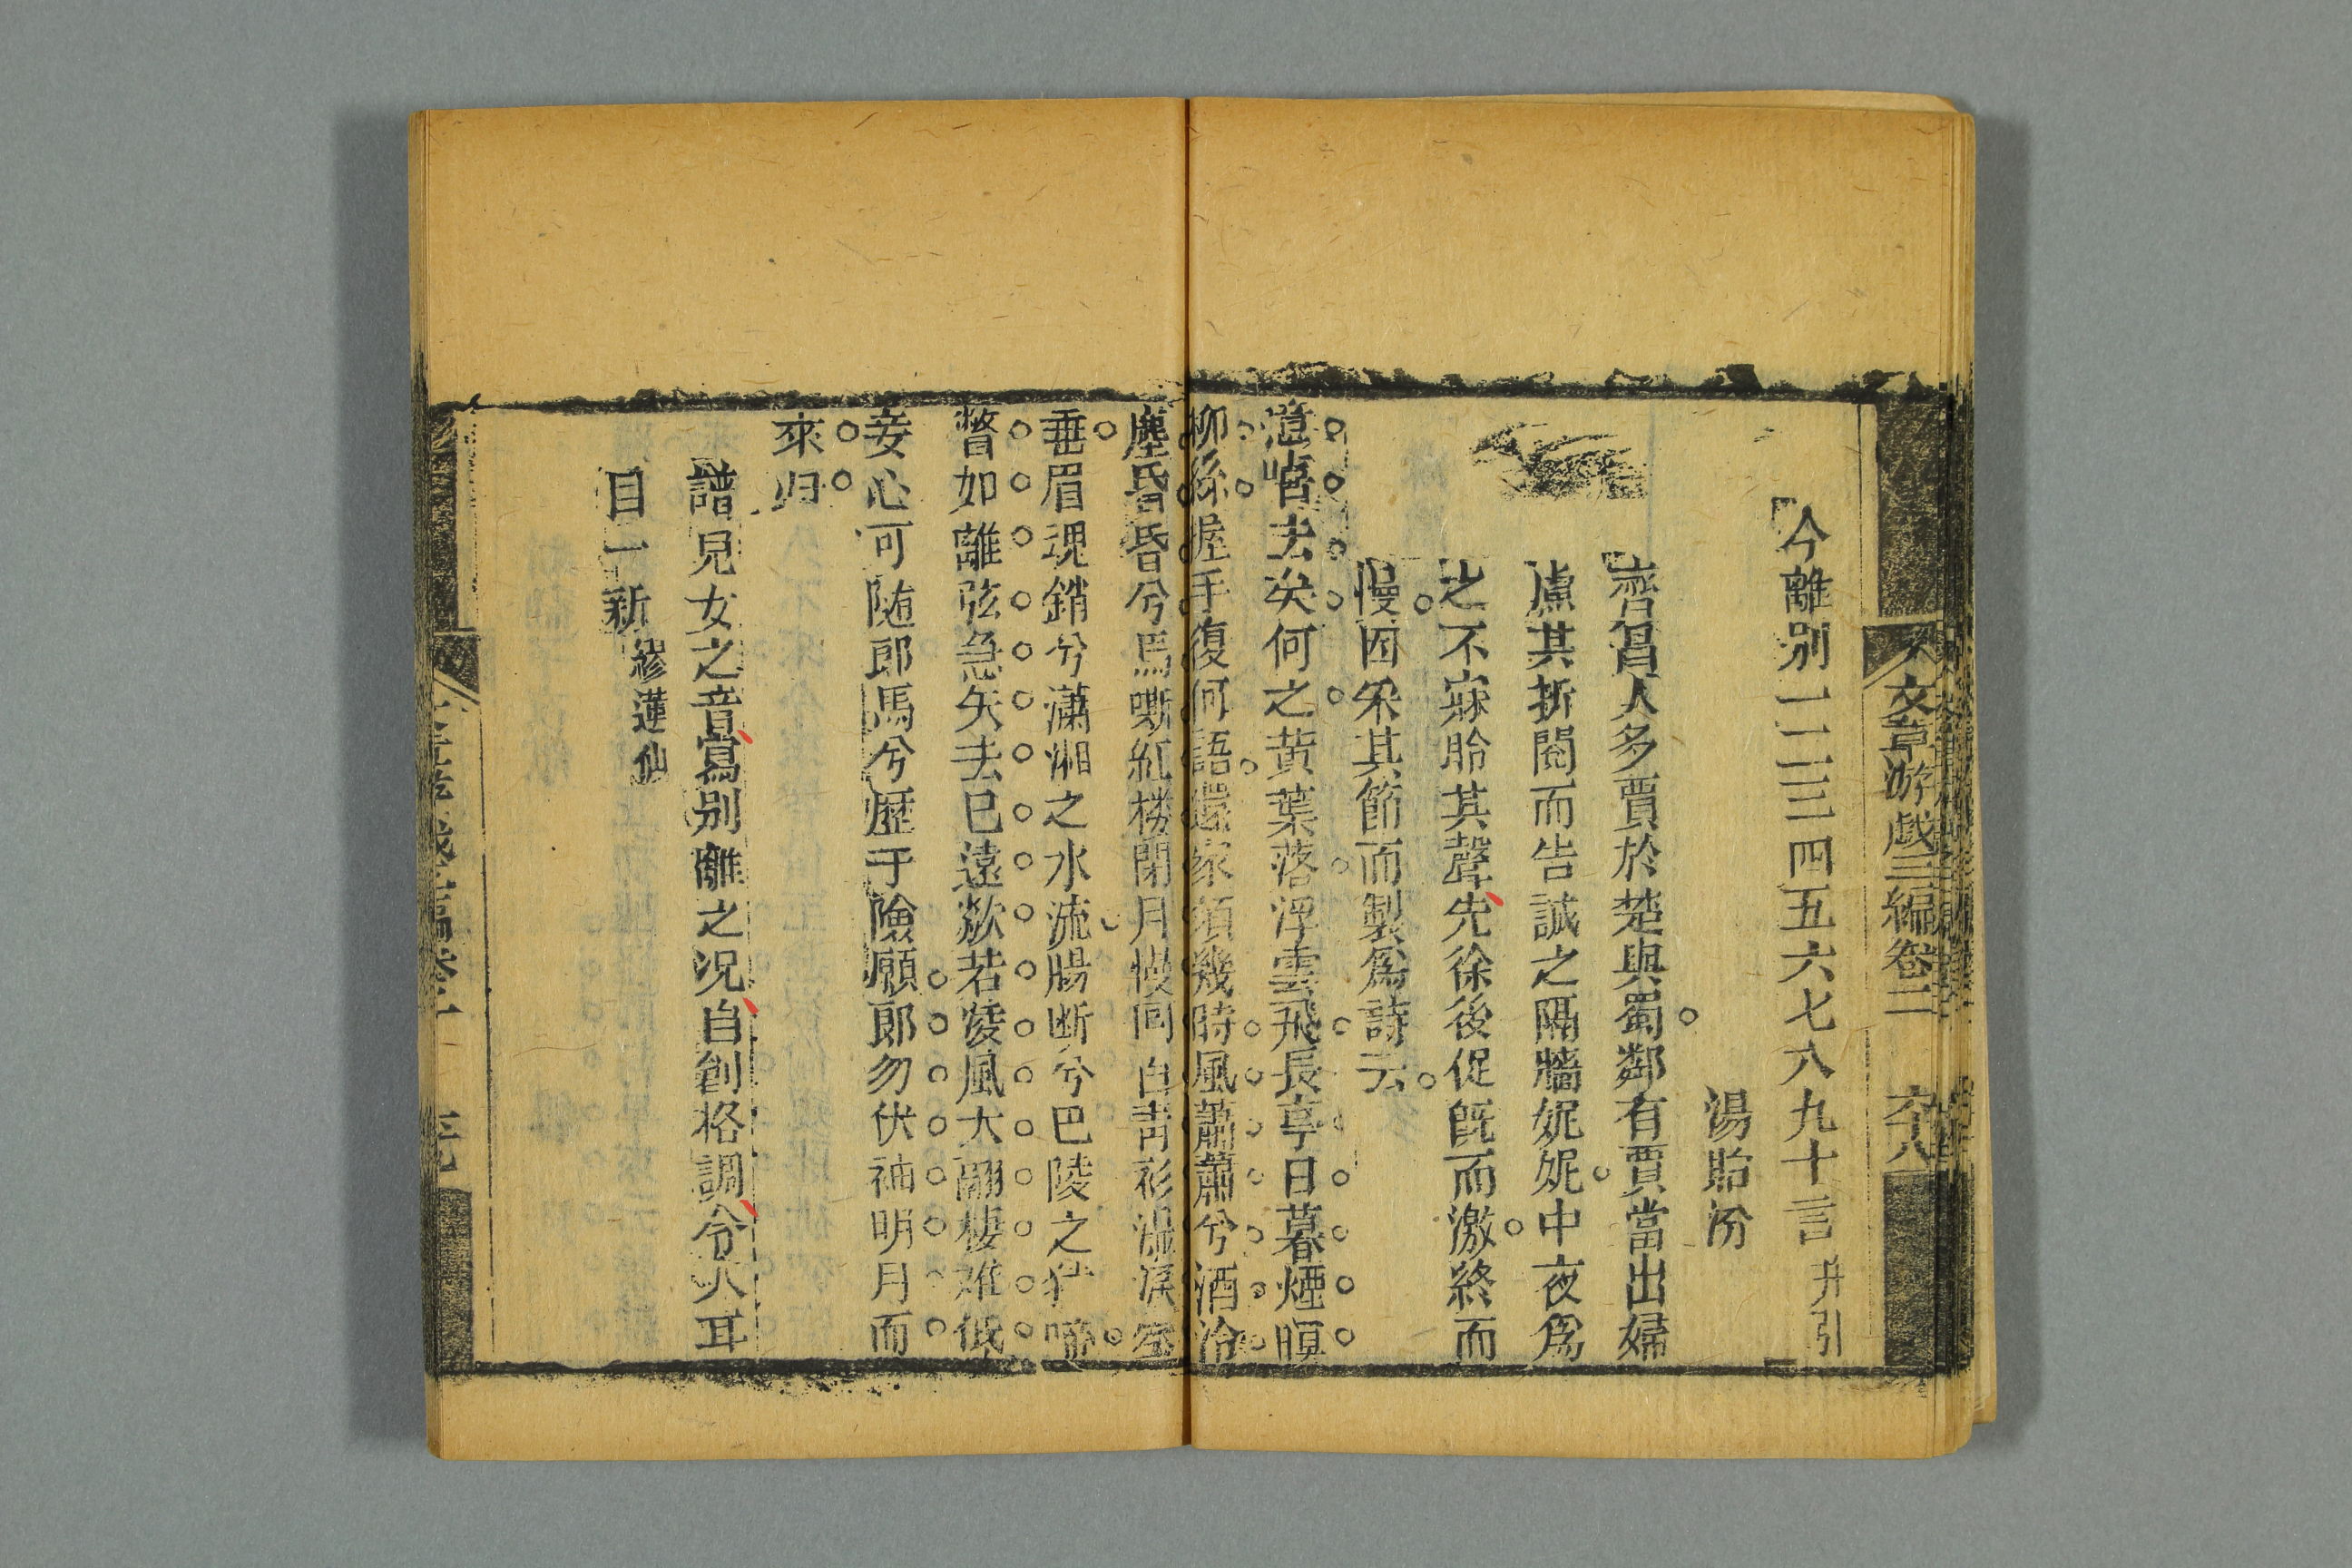 文章游戲三編卷二 六十八
今離別一二三四五六七八九十言 并引
湯貽汾
齊昌人多賈於楚與蜀鄰有賈當出婦
慮其折閱而告誡之隔牆妮妮中夜爲
之不寐聆其聲先徐後促旣而激終而
慢因采其節而製爲詩云
噫嘻去矣何之黃葉落浮雲飛長亭日暮煙暝
柳絲握手復何語還家須幾時風蕭蕭兮酒冷
塵昏昏兮馬嘶紅樓閉月慢同 白青衫濕淚空
垂眉魂銷兮瀟湘之水流腸断兮巴陵之猿啼
瞥如離弦急矢去已遠歘若凌風大翮棲难低
妾心可随郎馬兮歷于險願郎勿伏袖明月而
來归
譜兒女之音寫別離之况自創格調令人耳
目一新 繆蓮仙